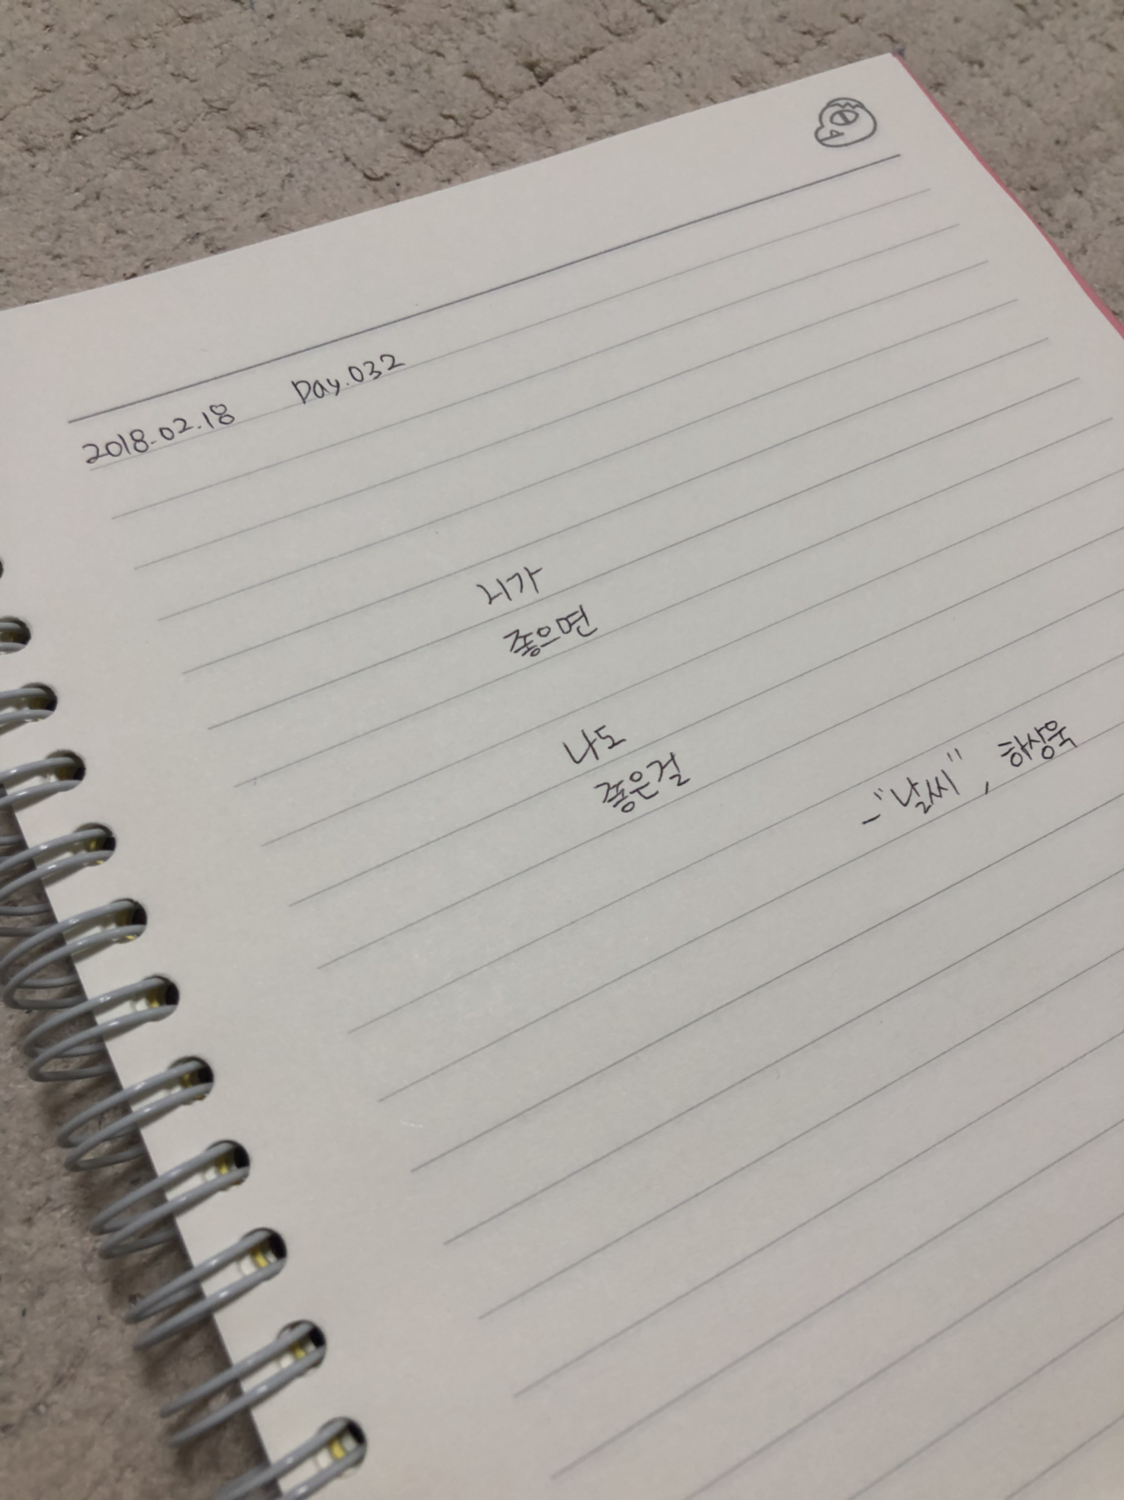 2018.02.18 Day.032
니가
좋으면
나도
좋은걸
-"날씨", 하상욱